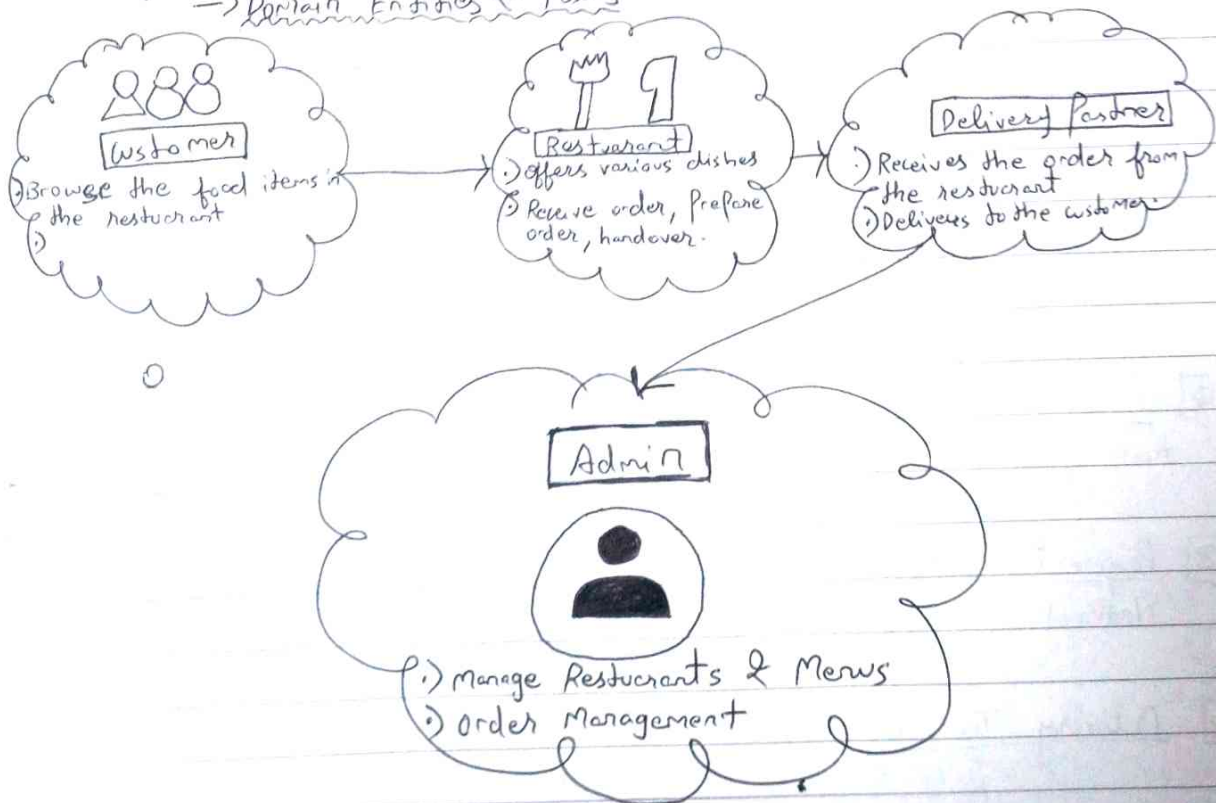 -> Domain Entities
Customer
·) Browse the food items in
the restucrant
·)
Restuarant
·) offers various dishes
·) Receive order, Prepare
order, handover.
Delivery Partner
·) Receives the order from
the restucrant
·) Delivers to the customer.
Admin
·) Manage Restucrants & Menus
·) order Management